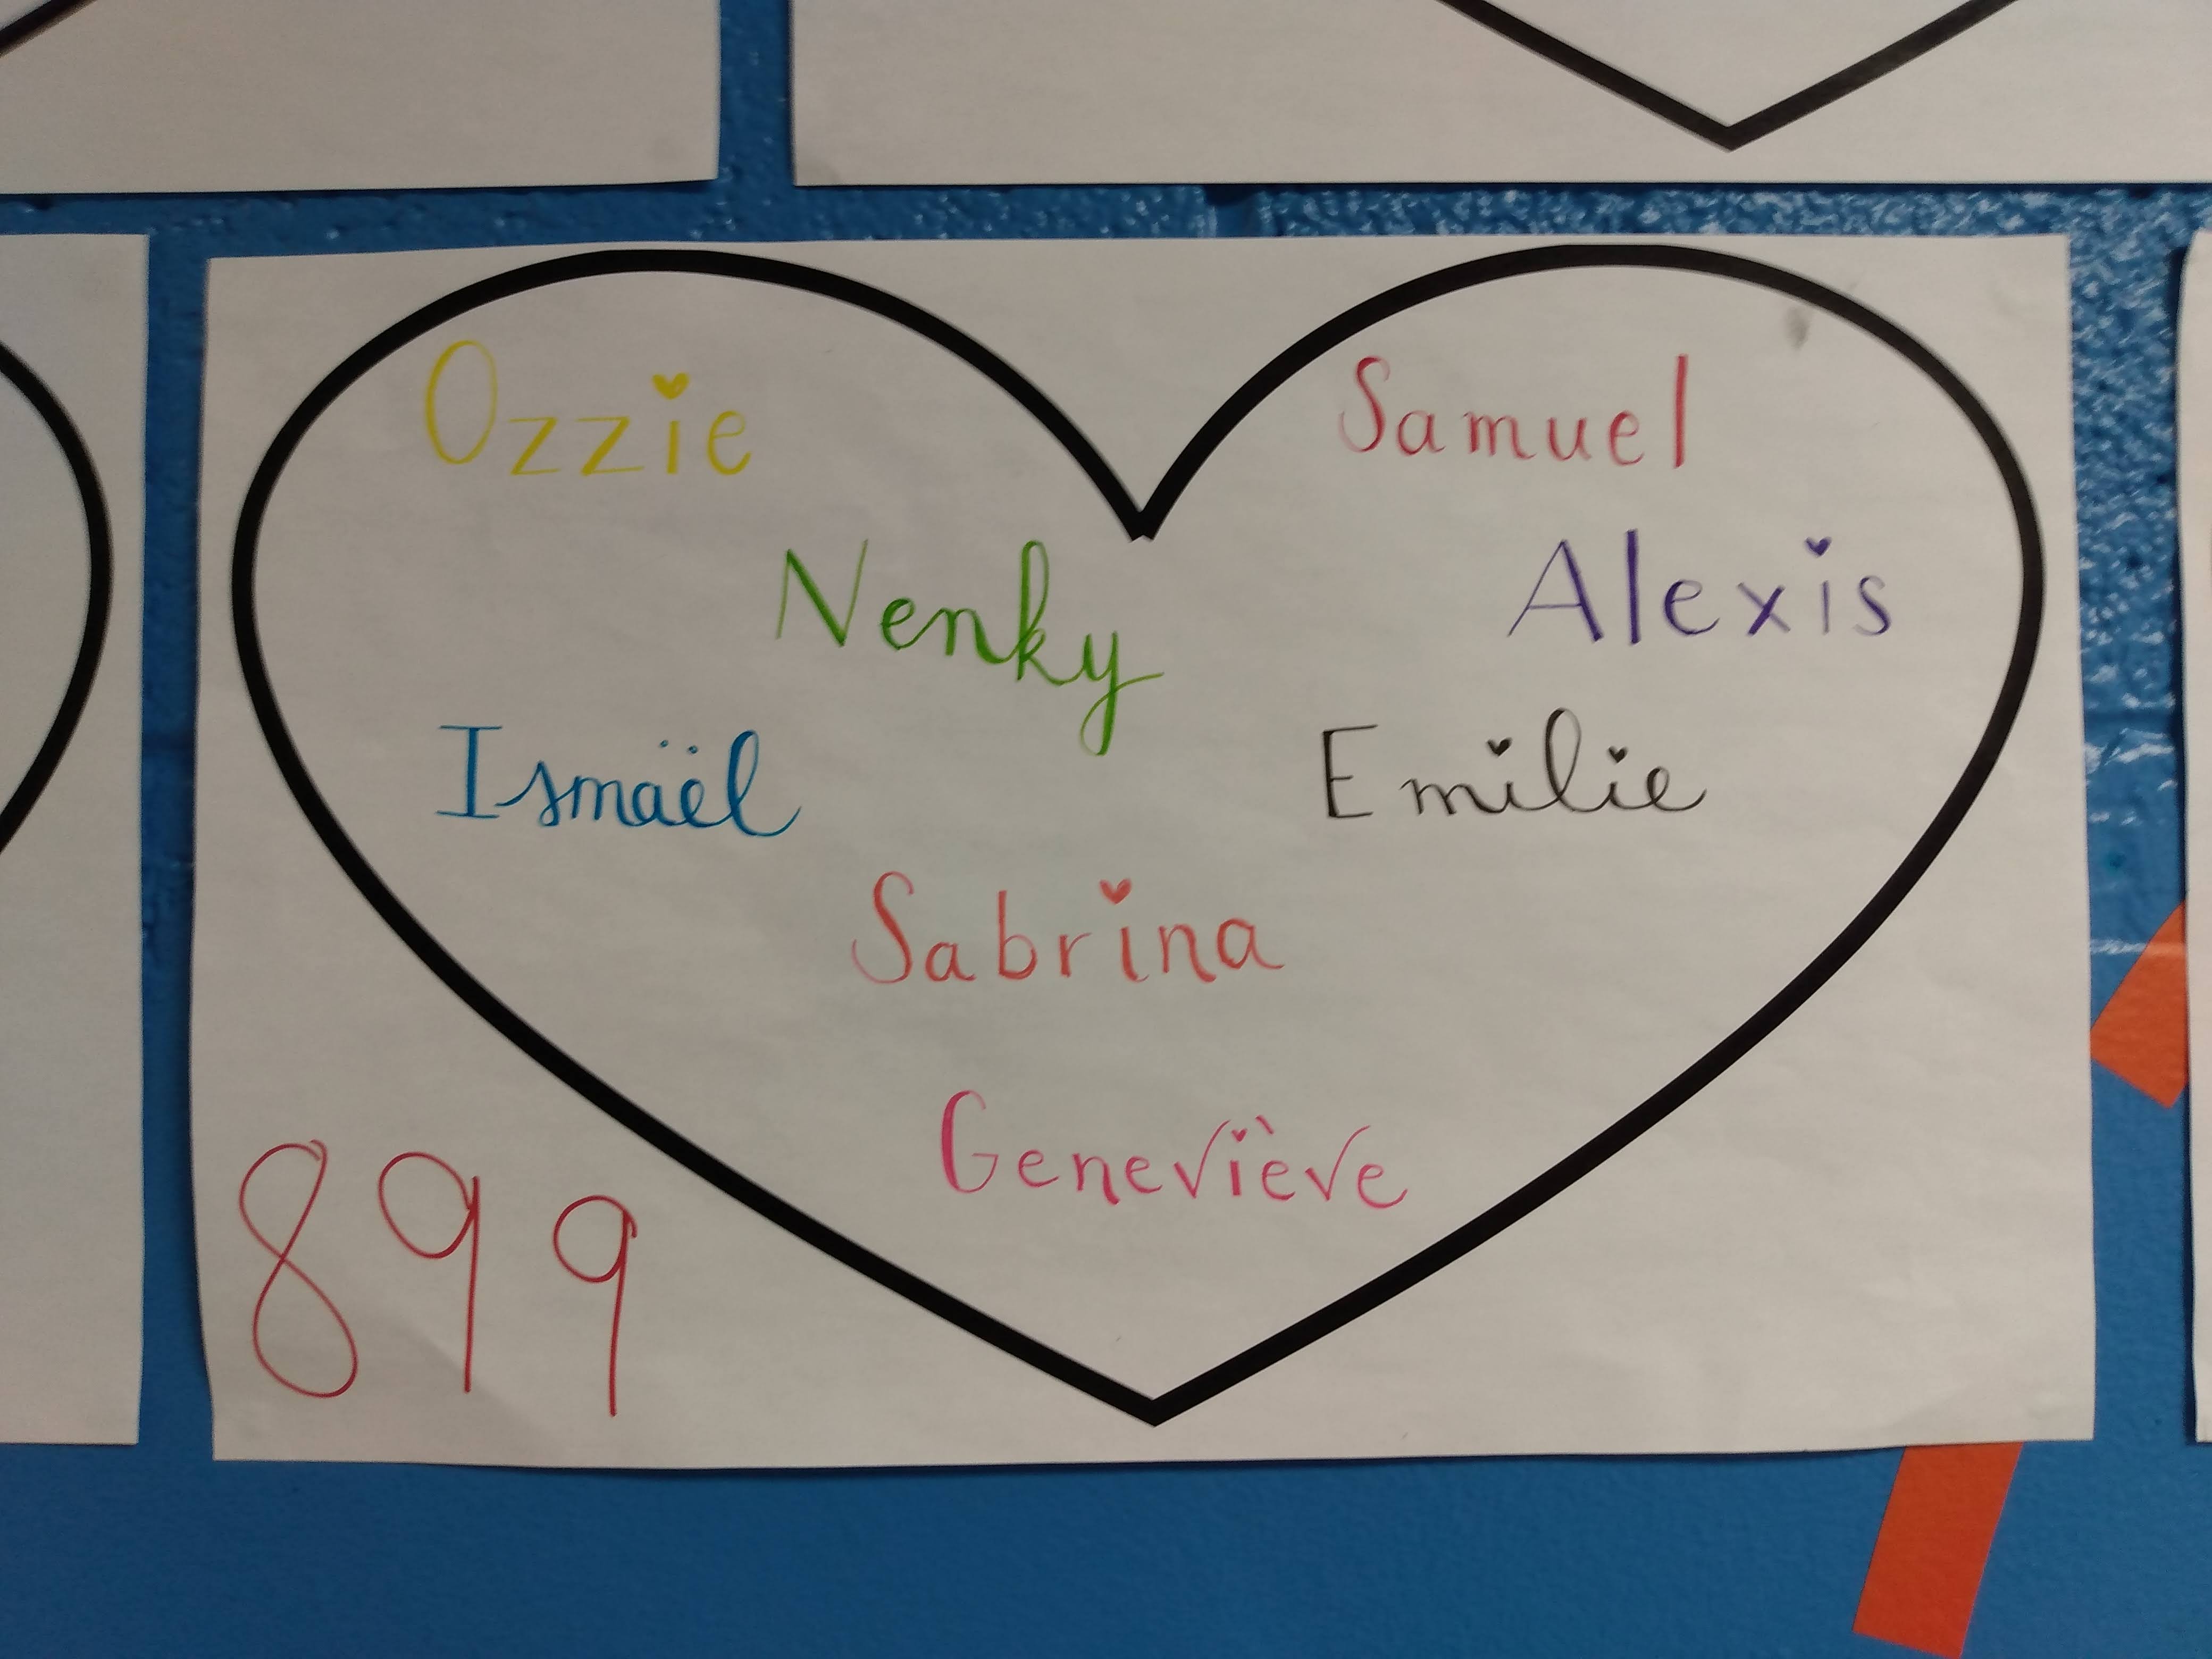 Ozzie
Samuel
Nenky
Alexis
Ismaël
Emilie
Sabrina
Geneviève
899